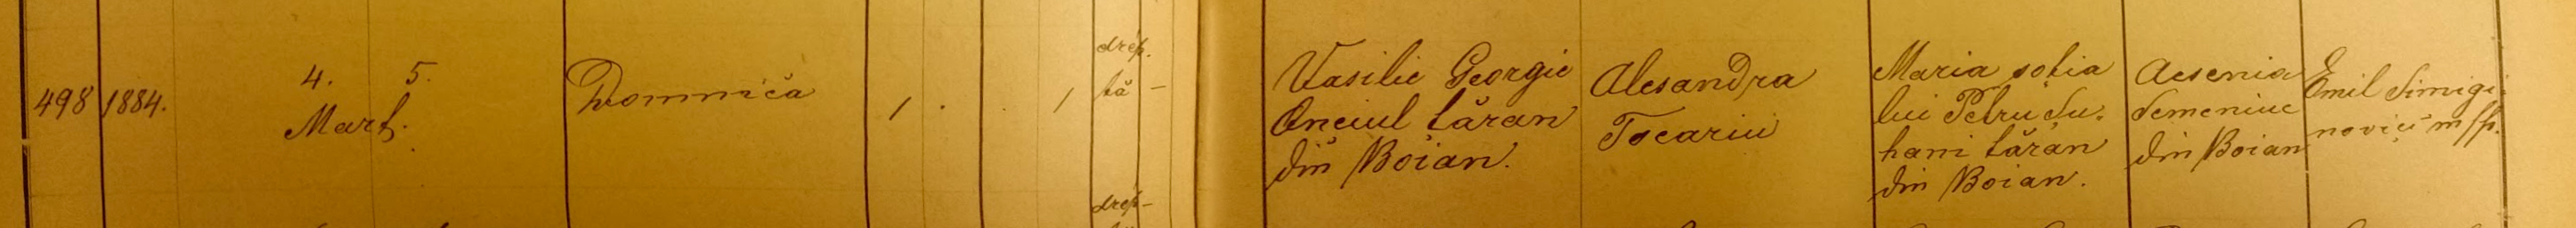 498 1884. 4. 5.
Mart.
Domnica
1 . . 1
drép.
tă —
Vasilie Georgie
Onciul țăran
din Boian.
Alesandra
Tocariu
Maria soția
lui Petru Su-
hani țăran
din Boian.
Acsenia
Semeniuc
din Boian
Emil Simigi-
novici m/p.
drép-